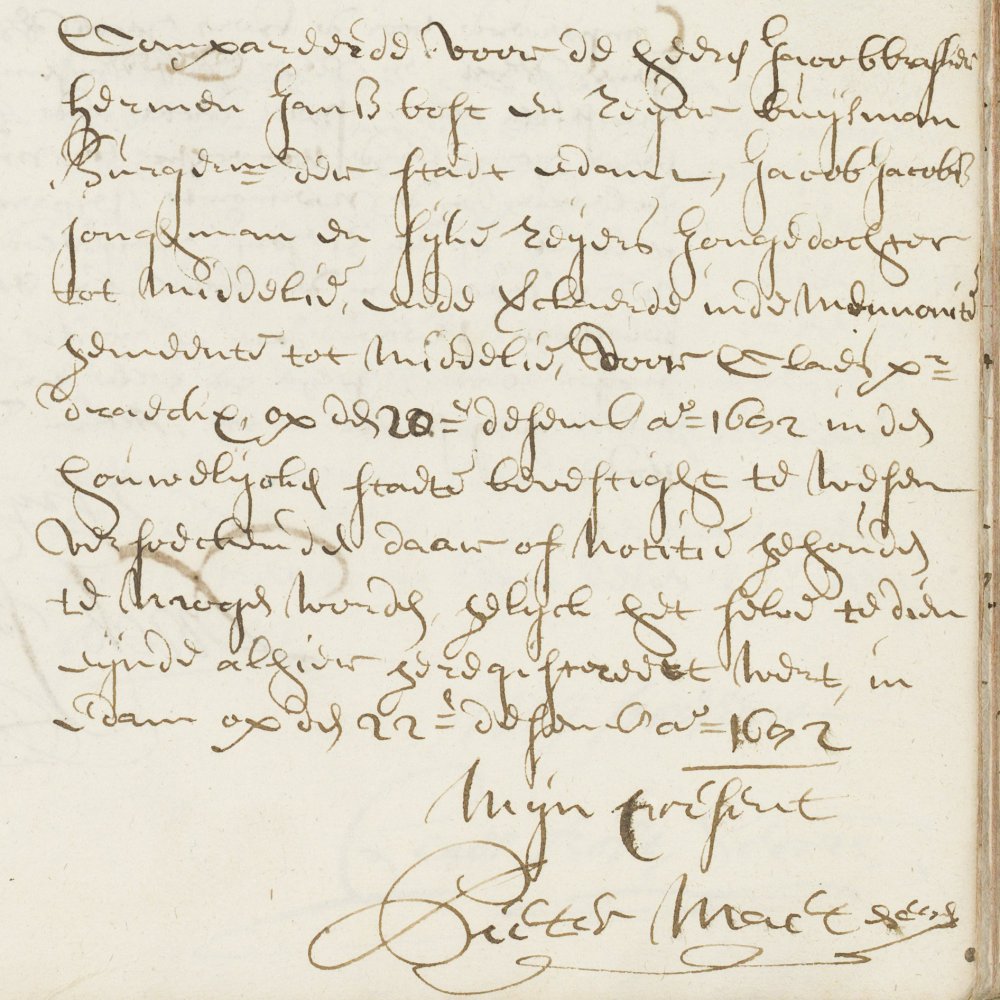 Compareerde voor de heere Jacob brasser
hermen Jansz bost en Reyer buijsman
Burgerm= der stadt edam, Jacob Jacobsz
jonghman en sijtie Reyers Jongedochter
tot middelie, ende verclaerde inde mennonite
gemeente tot middelie, door Claes pr=
draeckx, op den 20=e desemb ao= 1692 in den
houwelijcken staete bevesticht te wesen
versoeckende daar of notitie gehouden
te mogen worden, gelijck het selve te dien
eijnde alhier geregistreert wert, in
Edam op den 22=e desemb ao= 1692
Mijn present
Pieter Maert